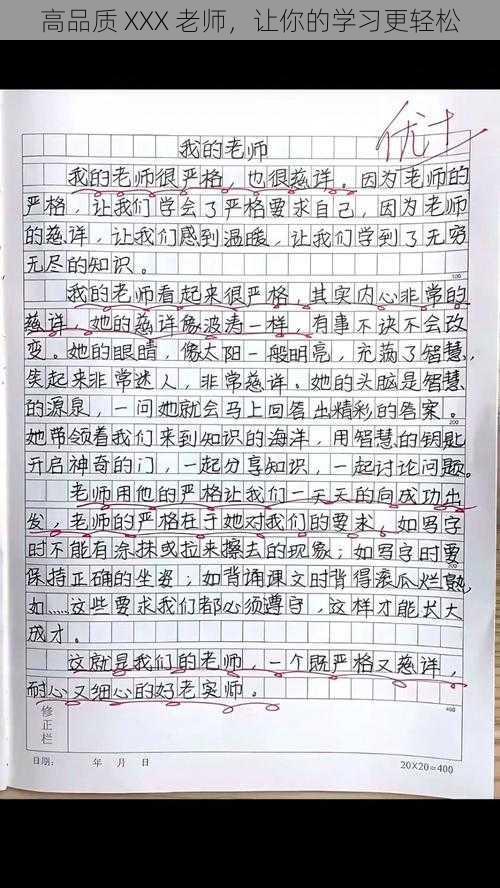 高品质 XXX 老师，让你的学习更轻松
优+
我的老师
我的老师很严格，也很慈详。因为老师的
严格，让我们学会了严格要求自己，因为老师
的慈详，让我们感到温暖，让我们学到了无穷
无尽的知识。
100
我的老师看起来很严格，其实内心非常的
慈详，她的慈详像波涛一样，有事不诀不会改
变。她的眼睛，像太阳一般明亮，充满了智慧，
笑起来非常迷人，非常慈详。她的头脑是智慧
的源泉，一问她就会马上回答出精彩的答案。
200
她带领着我们来到知识的海洋，用智慧的钥匙
开启神奇的门，一起分享知识，一起讨论问题。
老师用他的严格让我们一天天的向成功出
发，老师的严格在于她对我们的要求，如写字
时不能有涂抹或拉来擦去的现象；如写字时要
300
保持正确的坐姿；如背诵课文时背得滚瓜烂熟，
如……这些要求我们都必须遵守，这样才能长大
成才。
这就是我们的老师，一个既严格又慈详，
耐心又细心的好老实师。
400
修正栏
日期： 年 月 日
20×20=400